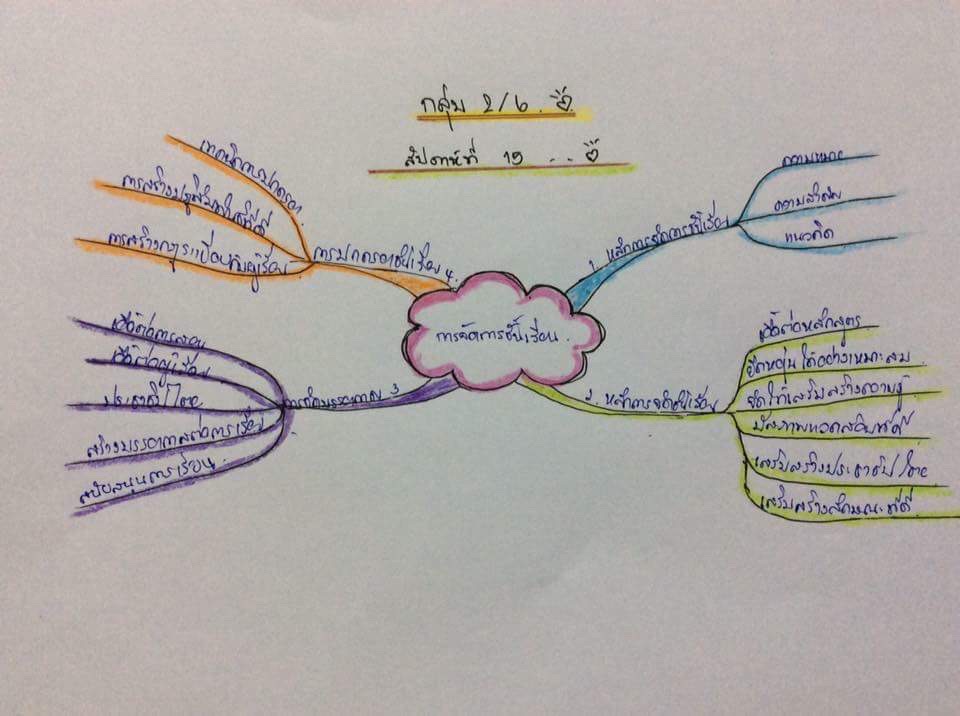 กลุ่ม 2/6
สัปดาห์ที่ 15
การจัดการชั้นเรียน
1 หลักการจัดการชั้นเรียน
ความหมาย
ความสำคัญ
แนวคิด
2 หลักการจัดชั้นเรียน
เอื้อต่อหลักสูตร
ยืดหยุ่นได้อย่างเหมาะสม
จัดให้เสริมสร้างความรู้
มีสภาพแวดล้อมที่ดี
เสริมสร้างประชาธิปไตย
เสริมสร้างลักษณะที่ดี
3 บรรยากาศ
เอื้อต่อการสอน
เอื้อต่อผู้เรียน
ประชาธิปไตย
สร้างบรรยากาศต่อการเรียน
สนับสนุนการเรียน
การปกครองชั้นเรียน 4.
เทคนิคการปกครอง
การสร้างปฏิสัมพันธ์ที่ดี